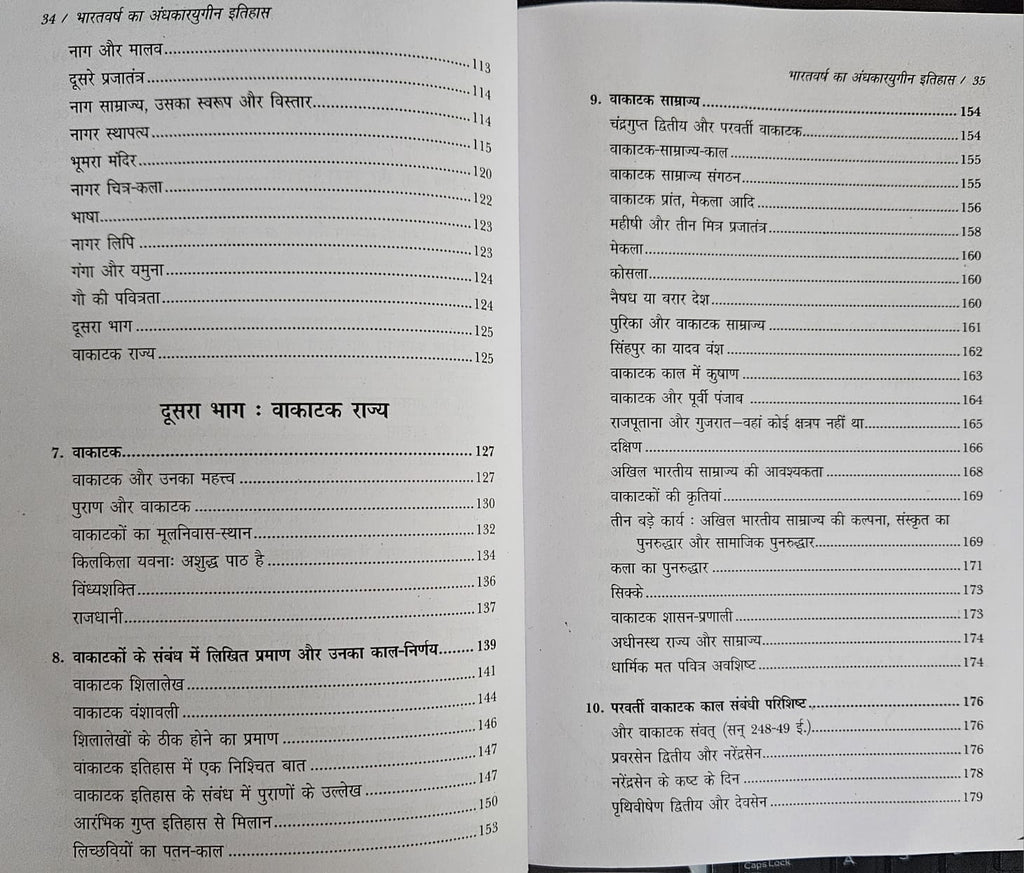 34 / भारतवर्ष का अंधकारयुगीन इतिहास
नाग और मालव...113
दूसरे प्रजातंत्र...114
नाग साम्राज्य, उसका स्वरूप और विस्तार...114
नागर स्थापत्य...115
भूमरा मंदिर...120
नागर चित्र-कला...122
भाषा...123
नागर लिपि...123
गंगा और यमुना...124
गौ की पवित्रता...124
दूसरा भाग...125
वाकाटक राज्य...125
दूसरा भाग : वाकाटक राज्य
7. वाकाटक...127
वाकाटक और उनका महत्त्व...127
पुराण और वाकाटक...130
वाकाटकों का मूलनिवास-स्थान...132
किलकिला यवनाः अशुद्ध पाठ है...134
विंध्यशक्ति...136
राजधानी...137
8. वाकाटकों के संबंध में लिखित प्रमाण और उनका काल-निर्णय...139
वाकाटक शिलालेख...141
वाकाटक वंशावली...144
शिलालेखों के ठीक होने का प्रमाण...146
वांकाटक इतिहास में एक निश्चित बात...147
वाकाटक इतिहास के संबंध में पुराणों के उल्लेख...147
आरंभिक गुप्त इतिहास से मिलान...150
लिच्छवियों का पतन-काल...153
भारतवर्ष का अंधकारयुगीन इतिहास / 35
9. वाकाटक साम्राज्य...154
चंद्रगुप्त द्वितीय और परवर्ती वाकाटक...154
वाकाटक-साम्राज्य-काल...155
वाकाटक साम्राज्य संगठन...155
वाकाटक प्रांत, मेकला आदि...156
महीषी और तीन मित्र प्रजातंत्र...158
मेकला...160
कोसला...160
नैषध या वरार देश...160
पुरिका और वाकाटक साम्राज्य...161
सिंहपुर का यादव वंश...162
वाकाटक काल में कुषाण...163
वाकाटक और पूर्वी पंजाब...164
राजपूताना और गुजरात–वहां कोई क्षत्रप नहीं था...165
दक्षिण...166
अखिल भारतीय साम्राज्य की आवश्यकता...168
वाकाटकों की कृतियां...169
तीन बड़े कार्य : अखिल भारतीय साम्राज्य की कल्पना, संस्कृत का
पुनरुद्धार और सामाजिक पुनरुद्धार...169
कला का पुनरुद्धार...171
सिक्के...173
वाकाटक शासन-प्रणाली...173
अधीनस्थ राज्य और साम्राज्य...174
धार्मिक मत पवित्र अवशिष्ट...174
10. परवर्ती वाकाटक काल संबंधी परिशिष्ट...176
और वाकाटक संवत् (सन् 248-49 ई.)...176
प्रवरसेन द्वितीय और नरेंद्रसेन...176
नरेंद्रसेन के कष्ट के दिन...178
पृथिवीषेण द्वितीय और देवसेन...179
Caps Lock
A